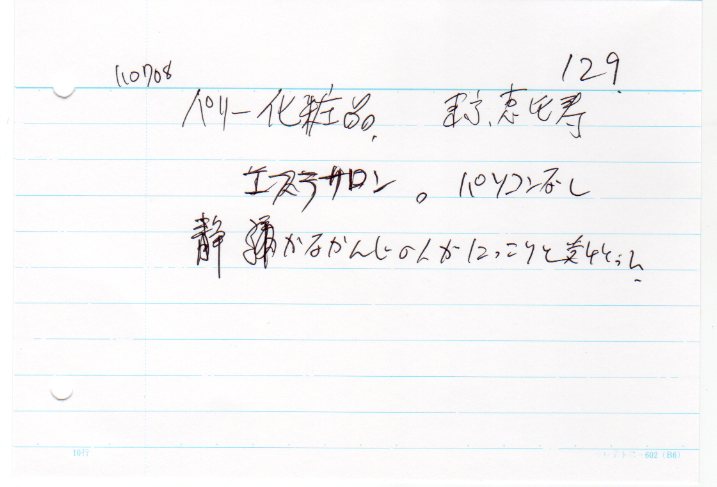 110708 129
ペリー化粧品. 東京、恵比寿
エステサロン。パソコンなし
静かなかんじの人がにっこりと
10行
602 (B6)